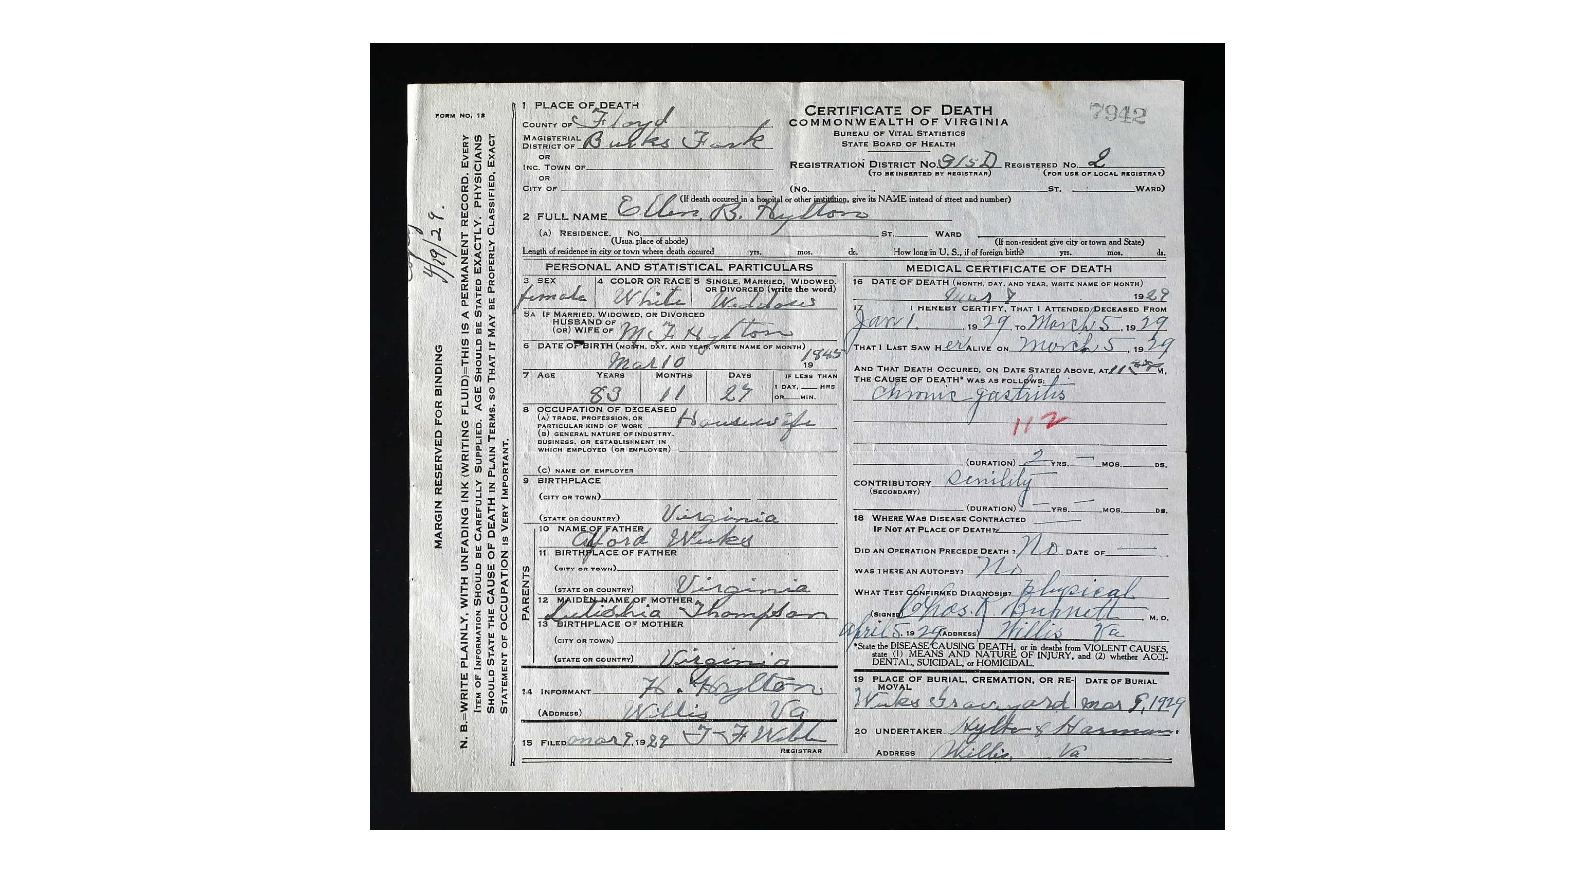 FORM NO. 12
MARGIN RESERVED FOR BINDING
N. B.=WRITE PLAINLY, WITH UNFADING INK (WRITING FLUID)=THIS IS A PERMANENT RECORD. EVERY
ITEM OF INFORMATION SHOULD BE CAREFULLY SUPPLIED. AGE SHOULD BE STATED EXACTLY. PHYSICIANS
SHOULD STATE THE CAUSE OF DEATH IN PLAIN TERMS, SO THAT IT MAY BE PROPERLY CLASSIFIED, EXACT
STATEMENT OF OCCUPATION IS VERY IMPORTANT.
4/19/29.
1 PLACE OF DEATH
COUNTY OF Floyd
MAGISTERIAL DISTRICT OF Burks Fork
OR
INC. TOWN OF
OR
CITY OF
CERTIFICATE OF DEATH
COMMONWEALTH OF VIRGINIA
BUREAU OF VITAL STATISTICS
STATE BOARD OF HEALTH
7942
REGISTRATION DISTRICT NO. 915D REGISTERED NO. 2
(TO BE INSERTED BY REGISTRAR) (FOR USE OF LOCAL REGISTRAR)
(No. ST. WARD)
(If death occured in a hospital or other institution, give its NAME instead of street and number)
2 FULL NAME Ellen. B. Hylton
(A) RESIDENCE. No. ST. WARD
(Usua. place of abode) (If non-resident give city or town and State)
Length of residence in city or town where death occured yrs. mos. ds. How long in U. S., if of foreign birth? yrs. mos. ds.
PERSONAL AND STATISTICAL PARTICULARS
3 SEX 4 COLOR OR RACE 5 SINGLE, MARRIED, WIDOWED, OR DIVORCED (write the word)
female White Widdow
5A IF MARRIED, WIDOWED, OR DIVORCED
HUSBAND OF
(OR) WIFE OF M F Hylton
6 DATE OF BIRTH (MONTH, DAY, AND YEAR, WRITE NAME OF MONTH)
Mar 10 19 1845
7 AGE YEARS MONTHS DAYS IF LESS THAN
1 DAY, HRS
OR MIN.
83 11 27
8 OCCUPATION OF DECEASED
(A) TRADE, PROFESSION, OR
PARTICULAR KIND OF WORK Housewife
(B) GENERAL NATURE OF INDUSTRY,
BUSINESS, OR ESTABLISHMENT IN
WHICH EMPLOYED (OR EMPLOYER)
(C) NAME OF EMPLOYER
9 BIRTHPLACE
(CITY OR TOWN)
(STATE OR COUNTRY) Virginia
PARENTS
10 NAME OF FATHER
11 BIRTHPLACE OF FATHER
(CITY OR TOWN)
(STATE OR COUNTRY) Virginia
12 MAIDEN NAME OF MOTHER
Thompson
13 BIRTHPLACE OF MOTHER
(CITY OR TOWN)
(STATE OR COUNTRY) Virginia
14 INFORMANT H. Hylton
(ADDRESS) Willis Va
15 FILED mar 9, 1929 T F Webb
REGISTRAR
MEDICAL CERTIFICATE OF DEATH
16 DATE OF DEATH (MONTH, DAY, AND YEAR, WRITE NAME OF MONTH)
1929
17 I HEREBY CERTIFY, THAT I ATTENDED DECEASED FROM
Jan 1, 1929, TO March 5, 1929
THAT I LAST SAW HER ALIVE ON March 5, 1929
AND THAT DEATH OCCURED, ON DATE STATED ABOVE, AT 11 M,
THE CAUSE OF DEATH* WAS AS FOLLOWS:
chronic gastritis
112
(DURATION) 2 YRS. MOS. DS.
CONTRIBUTORY senility
(SECONDARY)
(DURATION) YRS. MOS. DS.
18 WHERE WAS DISEASE CONTRACTED
IF NOT AT PLACE OF DEATH?
DID AN OPERATION PRECEDE DEATH? No DATE OF
WAS THERE AN AUTOPSY? No
WHAT TEST CONFIRMED DIAGNOSIS? physical
(SIGNED) Chas. K Burnett M. D.
April 5, 1929 (ADDRESS) Willis Va
*State the DISEASE CAUSING DEATH, or in deaths from VIOLENT CAUSES,
state (1) MEANS AND NATURE OF INJURY, and (2) whether ACCI-
DENTAL, SUICIDAL, or HOMICIDAL.
19 PLACE OF BURIAL, CREMATION, OR RE-MOVAL DATE OF BURIAL
Graveyard mar 9, 1929
20 UNDERTAKER Hylton & Harman.
ADDRESS Willis, Va